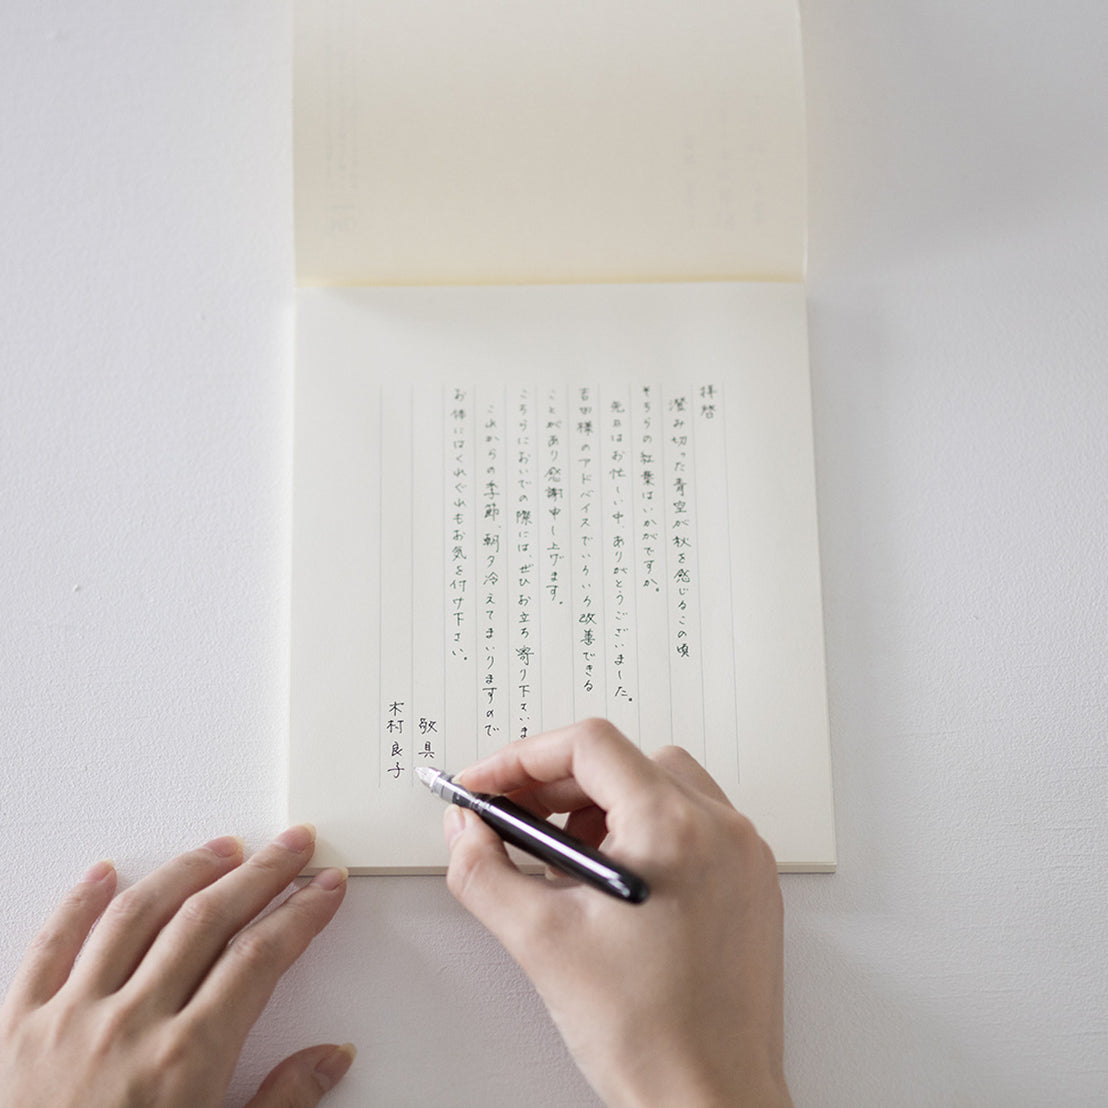 拝啓
澄み切った青空が秋を感じるこの頃
そちらの紅葉はいかがですか。
先日はお忙しい中、ありがとうございました。
吉田様のアドベイスでいろいろ改善できる
ことがあり感謝申し上げます。
こちらにおいでの際には、ぜひお立ち寄り下さいま
これからの季節、朝夕冷えてまいりますので
お体にはくれぐれもお気を付け下さい。
敬具
木村良子